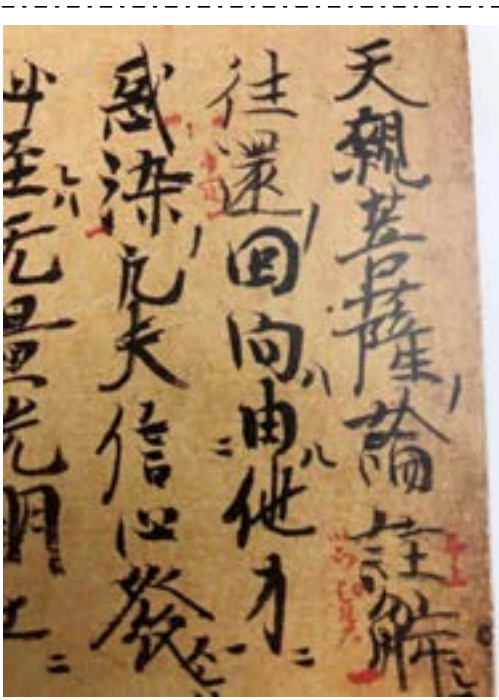 天親菩薩ノ論註解
往還ノ回向ハ由ハ他力ニ
惑染ノ凡夫信心發
必至无量光明土ニ